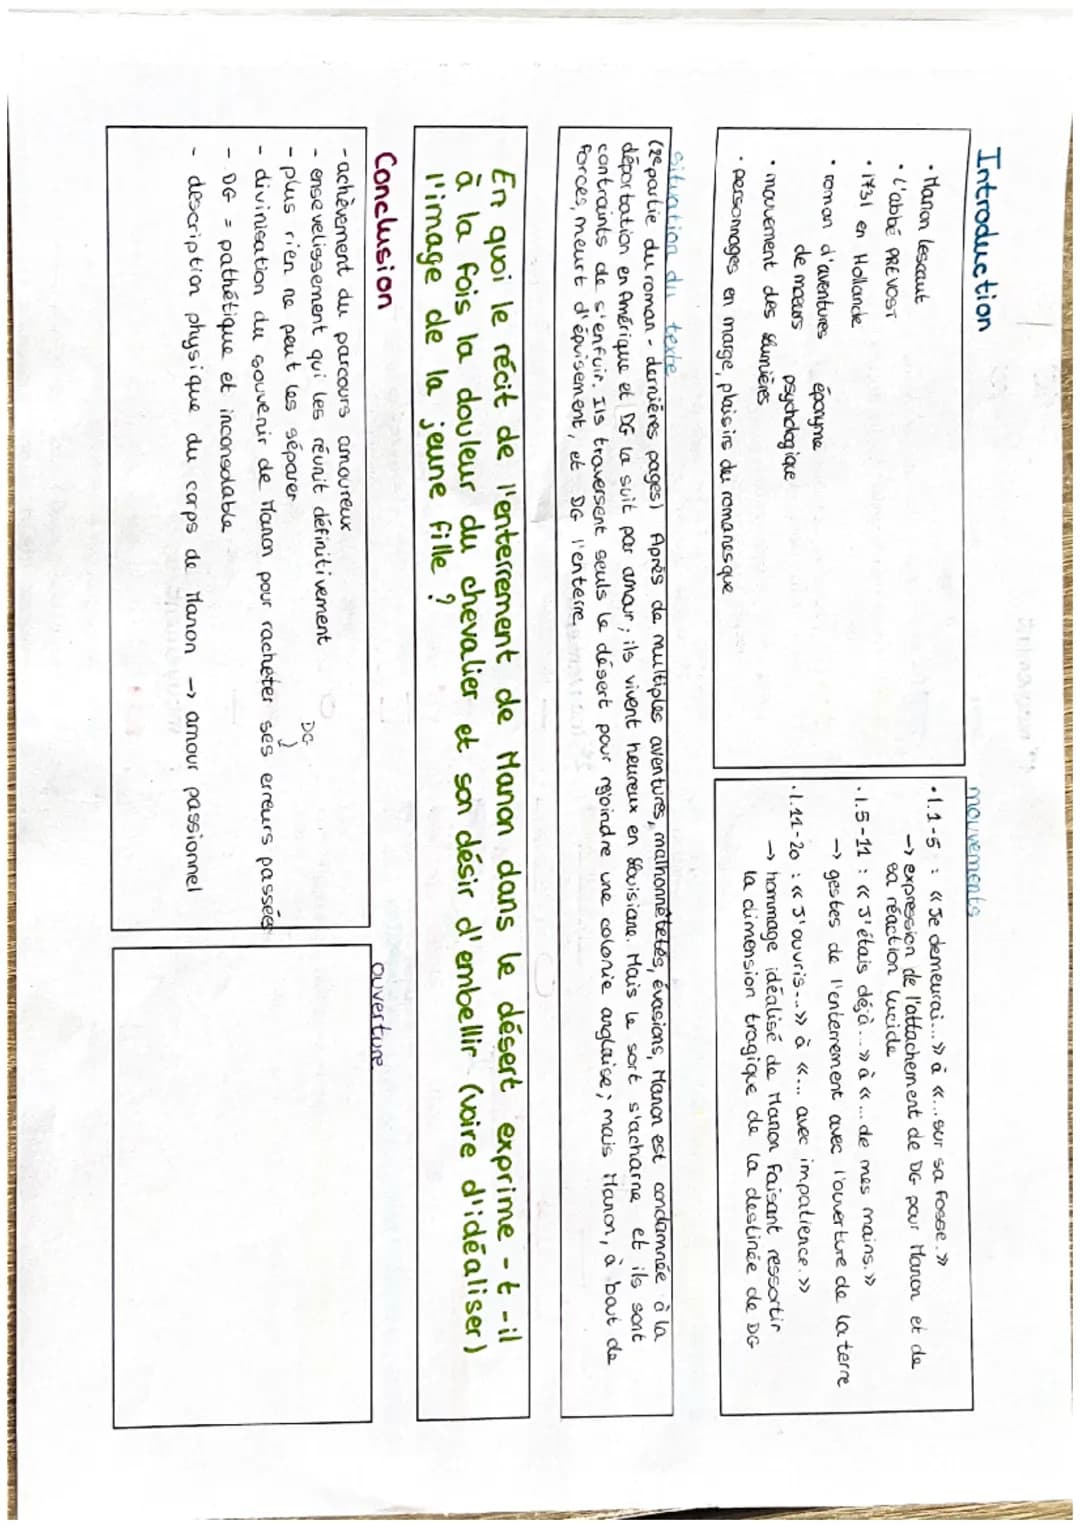 Introduction
• Manon Lescaut
• L'abbé PREVOST
• 1731 en Hollande
• roman d'aventures éponyme
de mœurs psychologique
• mouvement des Lumières
• personnages en marge, plaisirs du romanesque
mouvements
• l.1-5 : « Je demeurai... » à «... sur sa fosse. »
→ expression de l'attachement de DG pour Manon et de
sa réaction lucide
• l.5-11 : « J'étais déjà... » à «... de mes mains. »
→ gestes de l'enterrement avec l'ouverture de la terre
• l.11-20 : « J'ouvris... » à «... avec impatience. »
→ hommage idéalisé de Manon faisant ressortir
la dimension tragique de la destinée de DG
situation du texte
(2e partie du roman - dernières pages) Après de multiples aventures, malhonnêtetés, évasions, Manon est condamnée à la
déportation en Amérique et DG la suit par amour ; ils vivent heureux en Louisiane. Mais le sort s'acharne et ils sont
contraints de s'enfuir. Ils traversent seuls le désert pour rejoindre une colonie anglaise ; mais Manon, à bout de
forces, meurt d'épuisement, et DG l'enterre
En quoi le récit de l'enterrement de Manon dans le désert exprime-t-il
à la fois la douleur du chevalier et son désir d'embellir (voire d'idéaliser)
l'image de la jeune fille ?
Conclusion
- achèvement du parcours amoureux
- ensevelissement qui les réunit définitivement
- plus rien ne peut les séparer
DG
- divinisation du souvenir de Manon pour racheter ses erreurs passées
- DG = pathétique et inconsolable
- description physique du corps de Manon → amour passionnel
ouverture